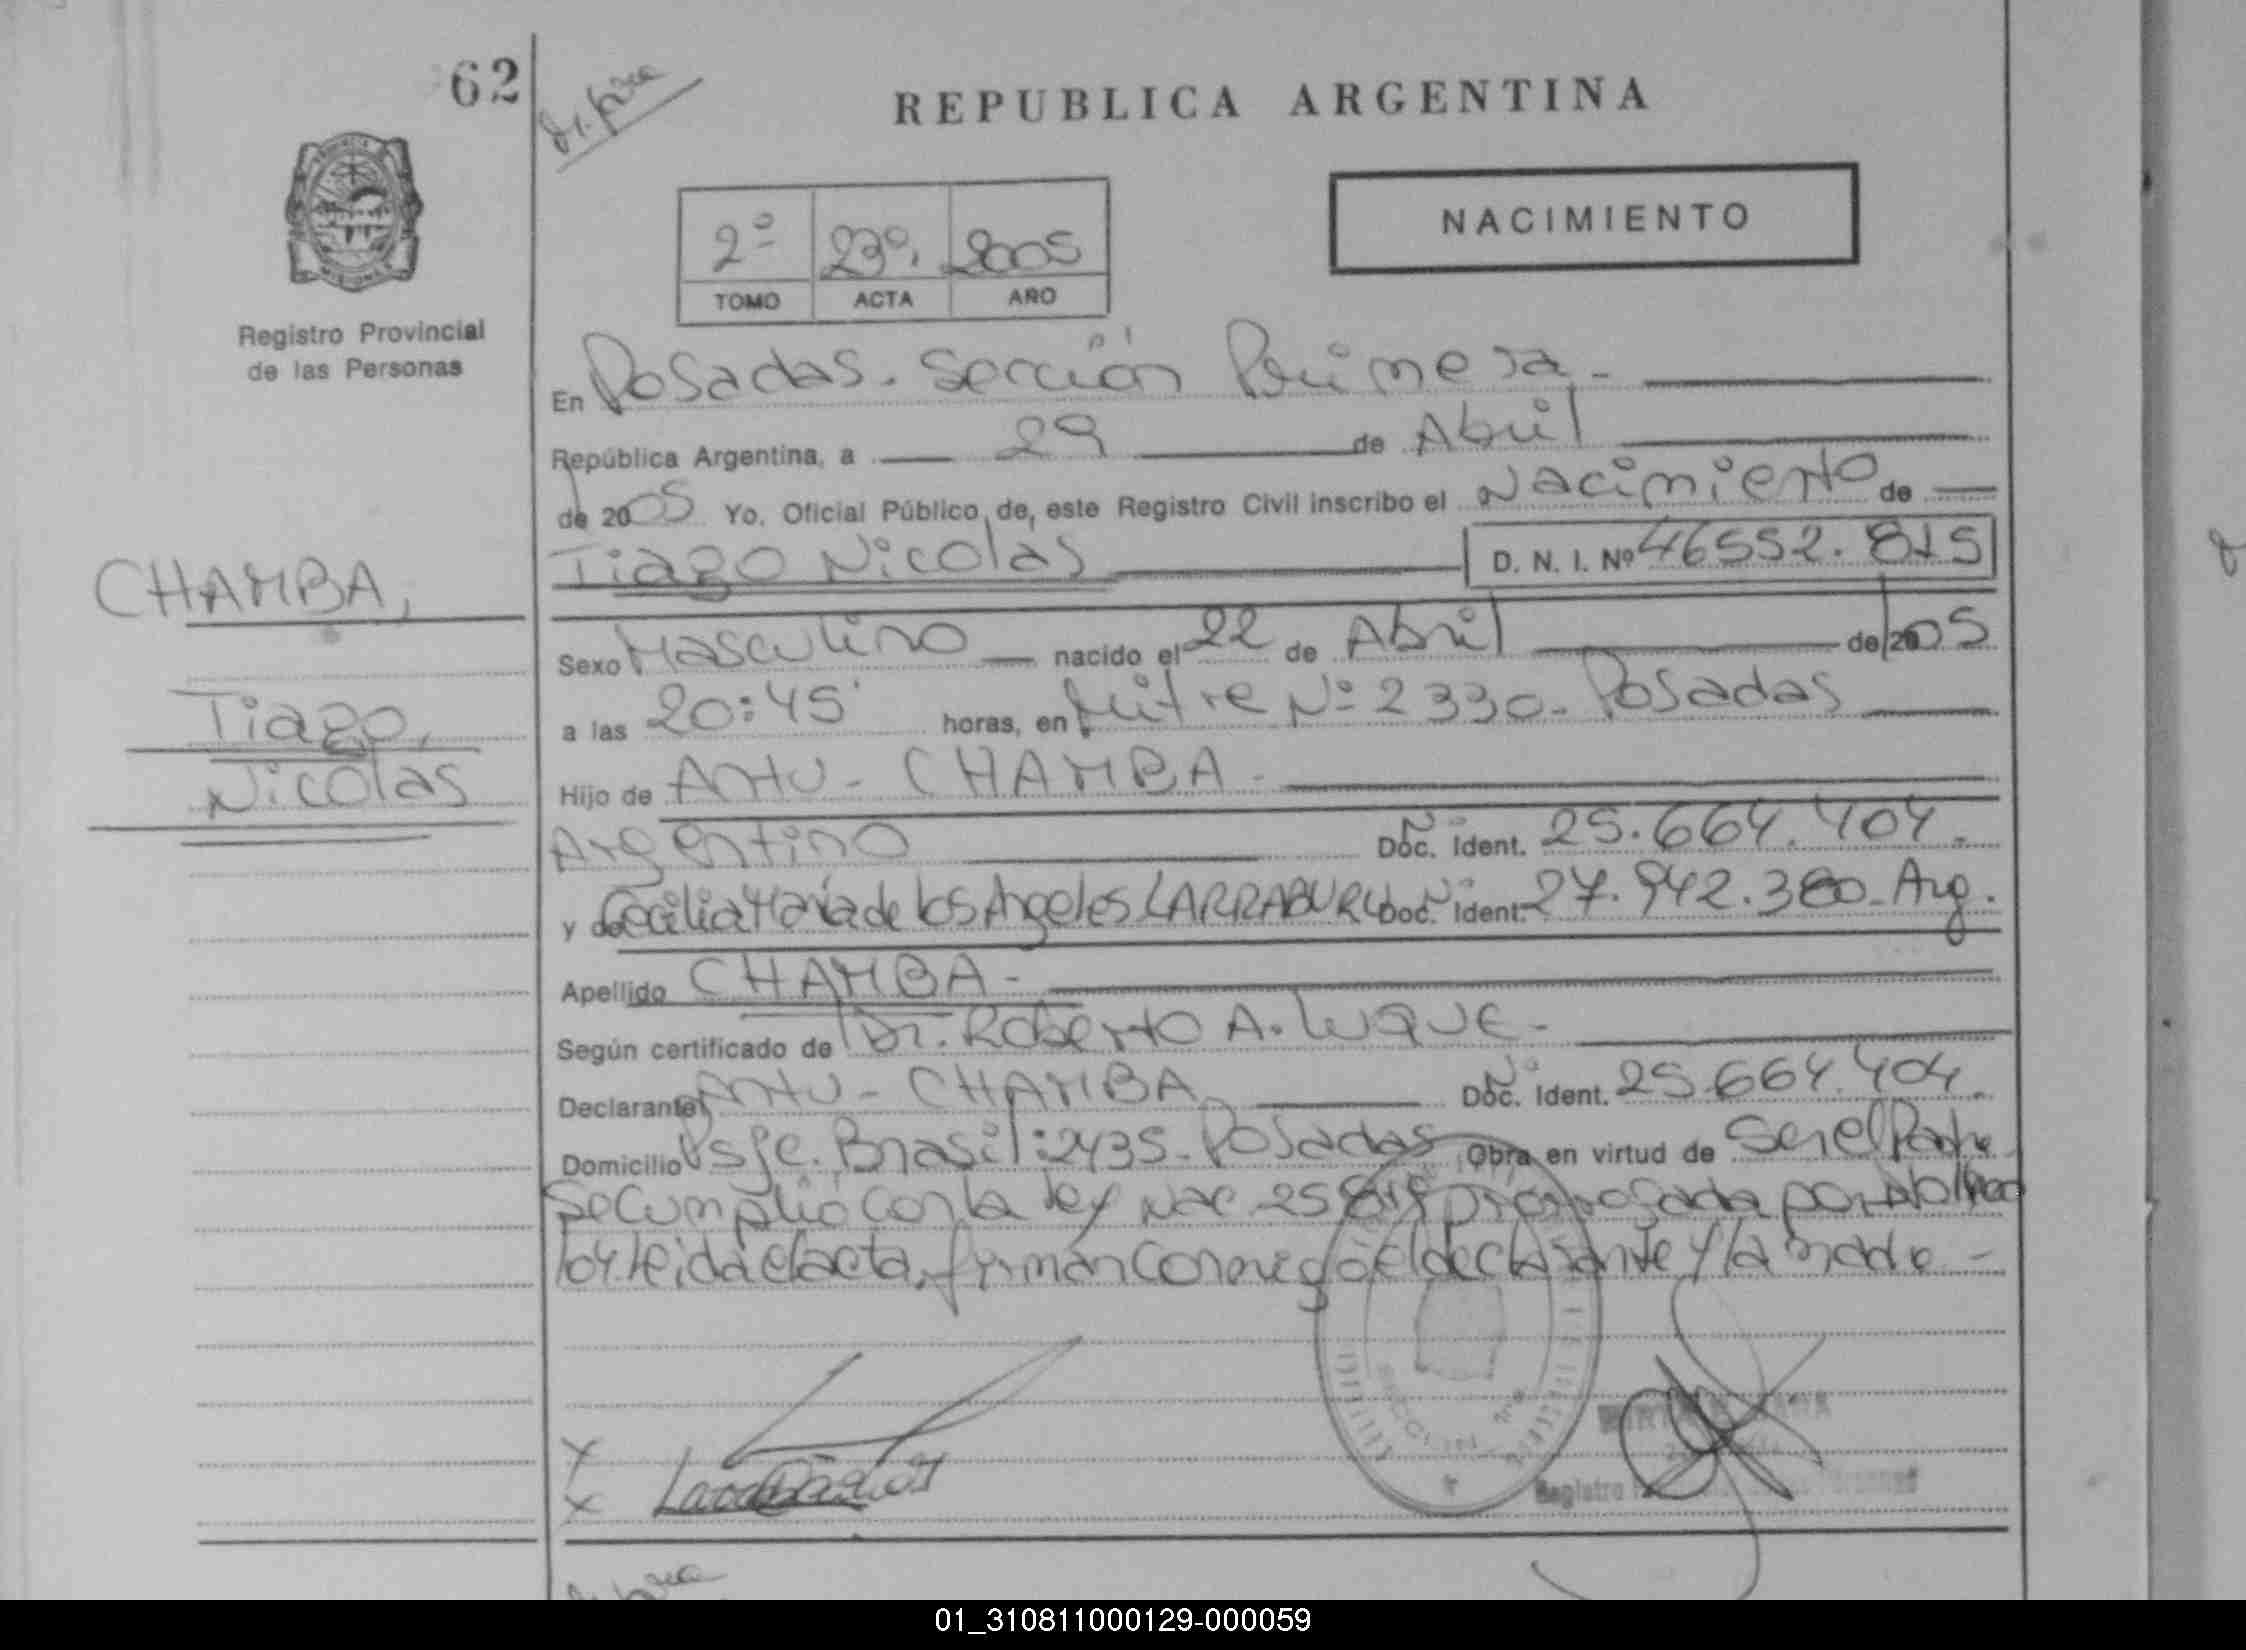 62
REPUBLICA ARGENTINA
NACIMIENTO
2º 239 2005
TOMO ACTA AÑO
Registro Provincial
de las Personas
En Posadas. Sección Primera.-
República Argentina, a 29 de Abril
de 2005 Yo. Oficial Público, de, este Registro Civil inscribo el Nacimiento de
Tiago Nicolas D. N. I. Nº 46552.815
CHAMBA,
Tiago,
Nicolas
Sexo Masculino nacido el 22 de Abril de 2005
a las 20:45' horas, en Mitre Nº 2330- Posadas
Hijo de Antu - CHAMBA -
Argentino Doc. Ident. 25.664.404.
y de Cecilia María de los Angeles LARRABURU Doc. Ident. 27.942.380- Arg.
Apellido CHAMBA-
Según certificado de Dr. Roberto A. Luque-
Declarante Antu - CHAMBA Doc. Ident. 25.664.404.
Domicilio Psje. Brasil: 2435- Posadas Obra en virtud de Ser el Padre
Se Cumplió con la ley Nac 25 prorrogada por
leida el acta, firman conmigo el declarante y la madre -
Registro
01_310811000129-000059